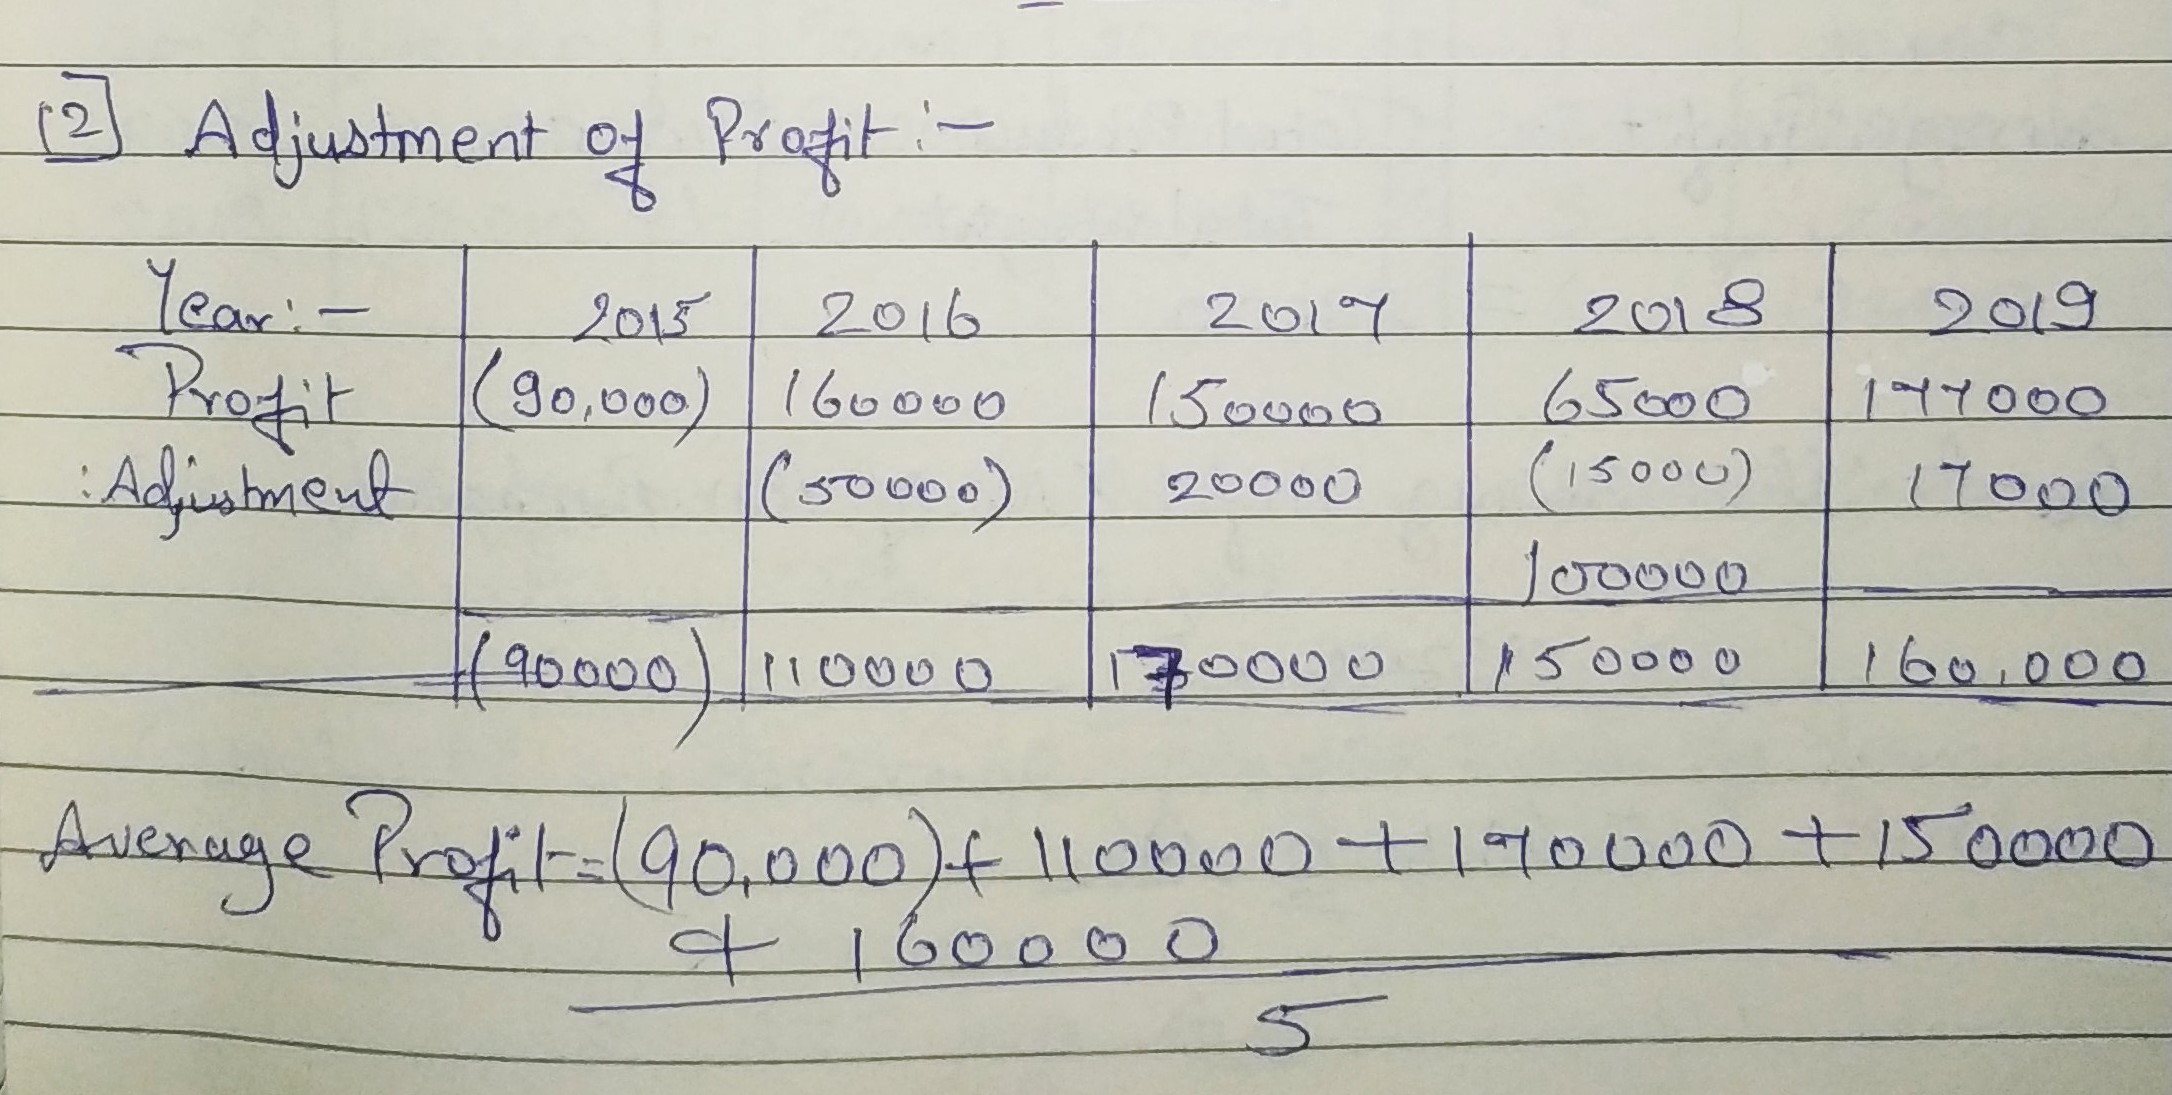 [2] Adjustment of Profit :-
Year :- 2015 2016 2017 2018 2019
Profit (90,000) 160000 150000 65000 177000
:Adjustment (50000) 20000 (15000) 17000
100000
(90000) 110000 170000 150000 160,000
Average Profit = (90,000) + 110000 + 170000 + 150000
+ 160000
5